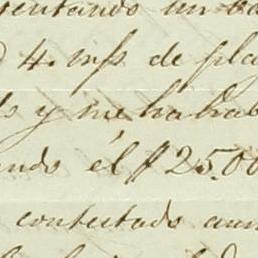 sentando un
4. m/s. de pla
y me ha hab
ando él $25.00
contestado aun